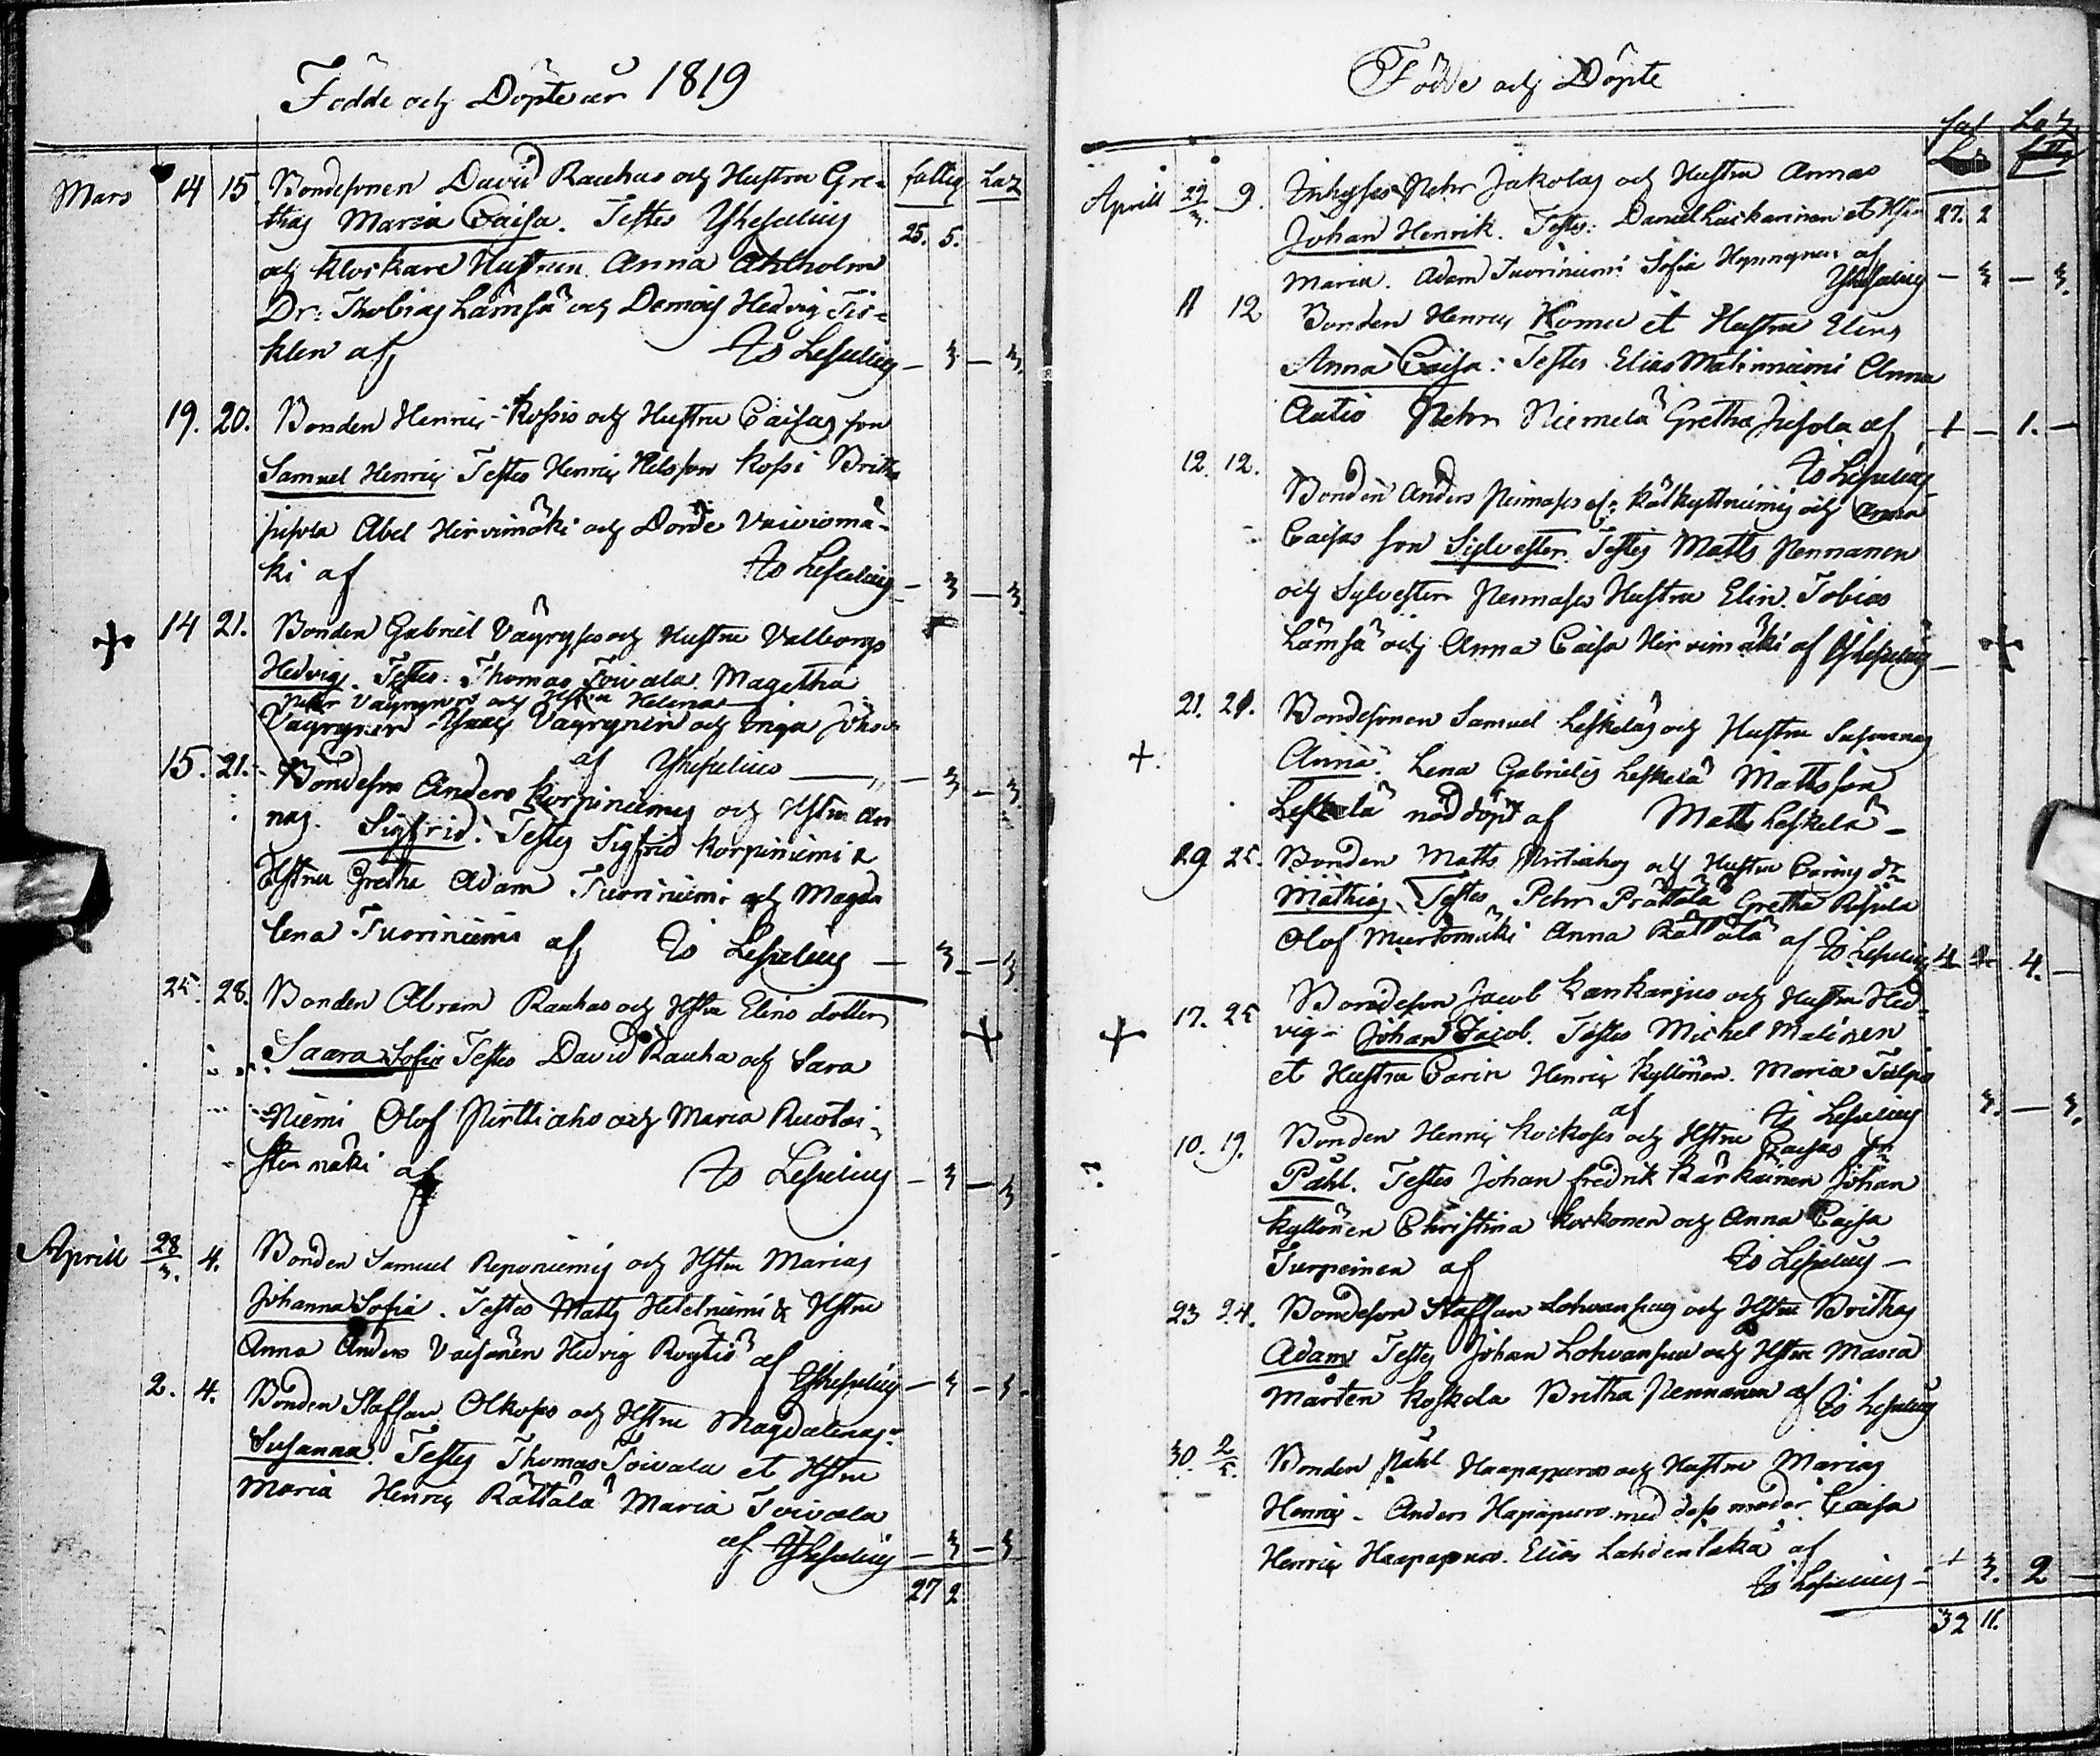 Födde och Döpte år 1819
fattig Laz
Mars 14 15 Bondesonen David Rauhas och Hustru Gre-
thas Maria Caisa. Testes Ythesselius 25. 5.
och klockare Hustrun Anna Ahlholm
Dr: Thobias Lämsä och Demois Hedvig Tis-
klen af Js Lesselius – 3 – 3.
19. 20. Bonden Henric Kossis och Hustru Caisas son
Samuel Henric Testes Henric Nilsson Kossi Britha
Abel Hirvimäki och Borde
ki af Js Lesselius – 3 – 3.
14 21. Bonden Gabriel Väyryses och Hustru Valborgs
Hedvig. Testes: Thomas Toivala. Magetha
Petter Väyrynen och Hstru Helena
Väyrynen Isaac Väyrynen och Inga
af Ythesselius – 3 – 3
15. 21. Bondeson Anders Korpiniemis och Hstru An
nas. Sigfrid. Testes Sigfrid Korpiniemi &
Hstru Gretha Adam Tuoriniemi och Magda
lena Tuoriniemi af Js Lesselius – 3 – 3
25. 28. Bonden Abram Rauhas och Hstru Elins dotter
Saara Sofia Testes David Rauha och Sara
Niemi Olof Pirttiaho och Maria
af Js Lesselius – 3 – 3
Aprill 28/3. 4. Bonden Samuel Reponiemis och Hstru Marias
Johanna Sofia. Testes Matts Heletniemi & Hstru
Anna Anders Väisänen Hedvig af Ythesselius – 3 – 3
2. 4. Bonden Staffan Olkoses och Hstru Magdalenas
Susanna. Testes Thomas Toivala et Hstru
Maria Henric Rättälä Maria Toivala
af Ythesselius – 3 – 3
27 2
Födde och Döpte
Laz
Aprill 29/3. 9. Inhyses Pehr Jakolas och Hustru Annas 27. 2
Johan Henrik. Testes: Daniel Laskarinen et Hstru
Maria. Adam Tuoriniemi Sofia af
Ythesselius – 3 – 3.
11 12 Bonden Henric Homu et Hustru Elins
Anna Caisa: Testes Elias Matinniemi Anna
Autio Pehr Niemelä Gretha af 1 – 1. –
Js Lesselius
12. 12. Bonden Anders af: och Anna
Caisas son Sylvester. Testes Matts Pennanen
och Sylvester Hustru Elin. Tobias
Lämsä och Anna Caisa Hirvimäki af Ythesselius –
21. 21. Bondesonen Samuel Leskeläs och Hustru Susannas
Anna. Lena Gabrielis Leskelä Mattsson
Leskelä nöddöpt af Matts Leskelä –
29 25. Bonden Matts Pirtiahos och Hustru Carins
Mathias Testes Pehr Prättälä Gretha
Olof Murtomäki Anna Rättälä af Js Lesselius 4. –
17. 25 Bondeson Jacob Kankarjus och Hustru Hed-
vig – Johan Jacob. Testes Michel Malinen
et Hustru Carin Henric Kyllönen. Maria
af Js Lesselius 3. – 3.
10. 19. Bonden Henric Kockoses och Hstru Caisas
Påhl. Testes Johan Fredrik Kärkäinen Johan
Kyllönen Christina Kockonen och Anna Caisa
Turpeinen af Js Lesselius –
23 24. Bondeson Staffan Lohvansuus och Hstru Brithas
Adam Testes Johan Lohvansuu och Hstru Maria
Mårten Koskela Britha Pennanen af Js Lesselius
30. 2/5. Bonden Påhl Haapapuros och Hustru Marias
Henric – Anders Hapapuro med dess moder Caisa
Henric Haapapuro. Elias Lahdenlaka af
Js Lesselius – 1 3. 2
32 11.